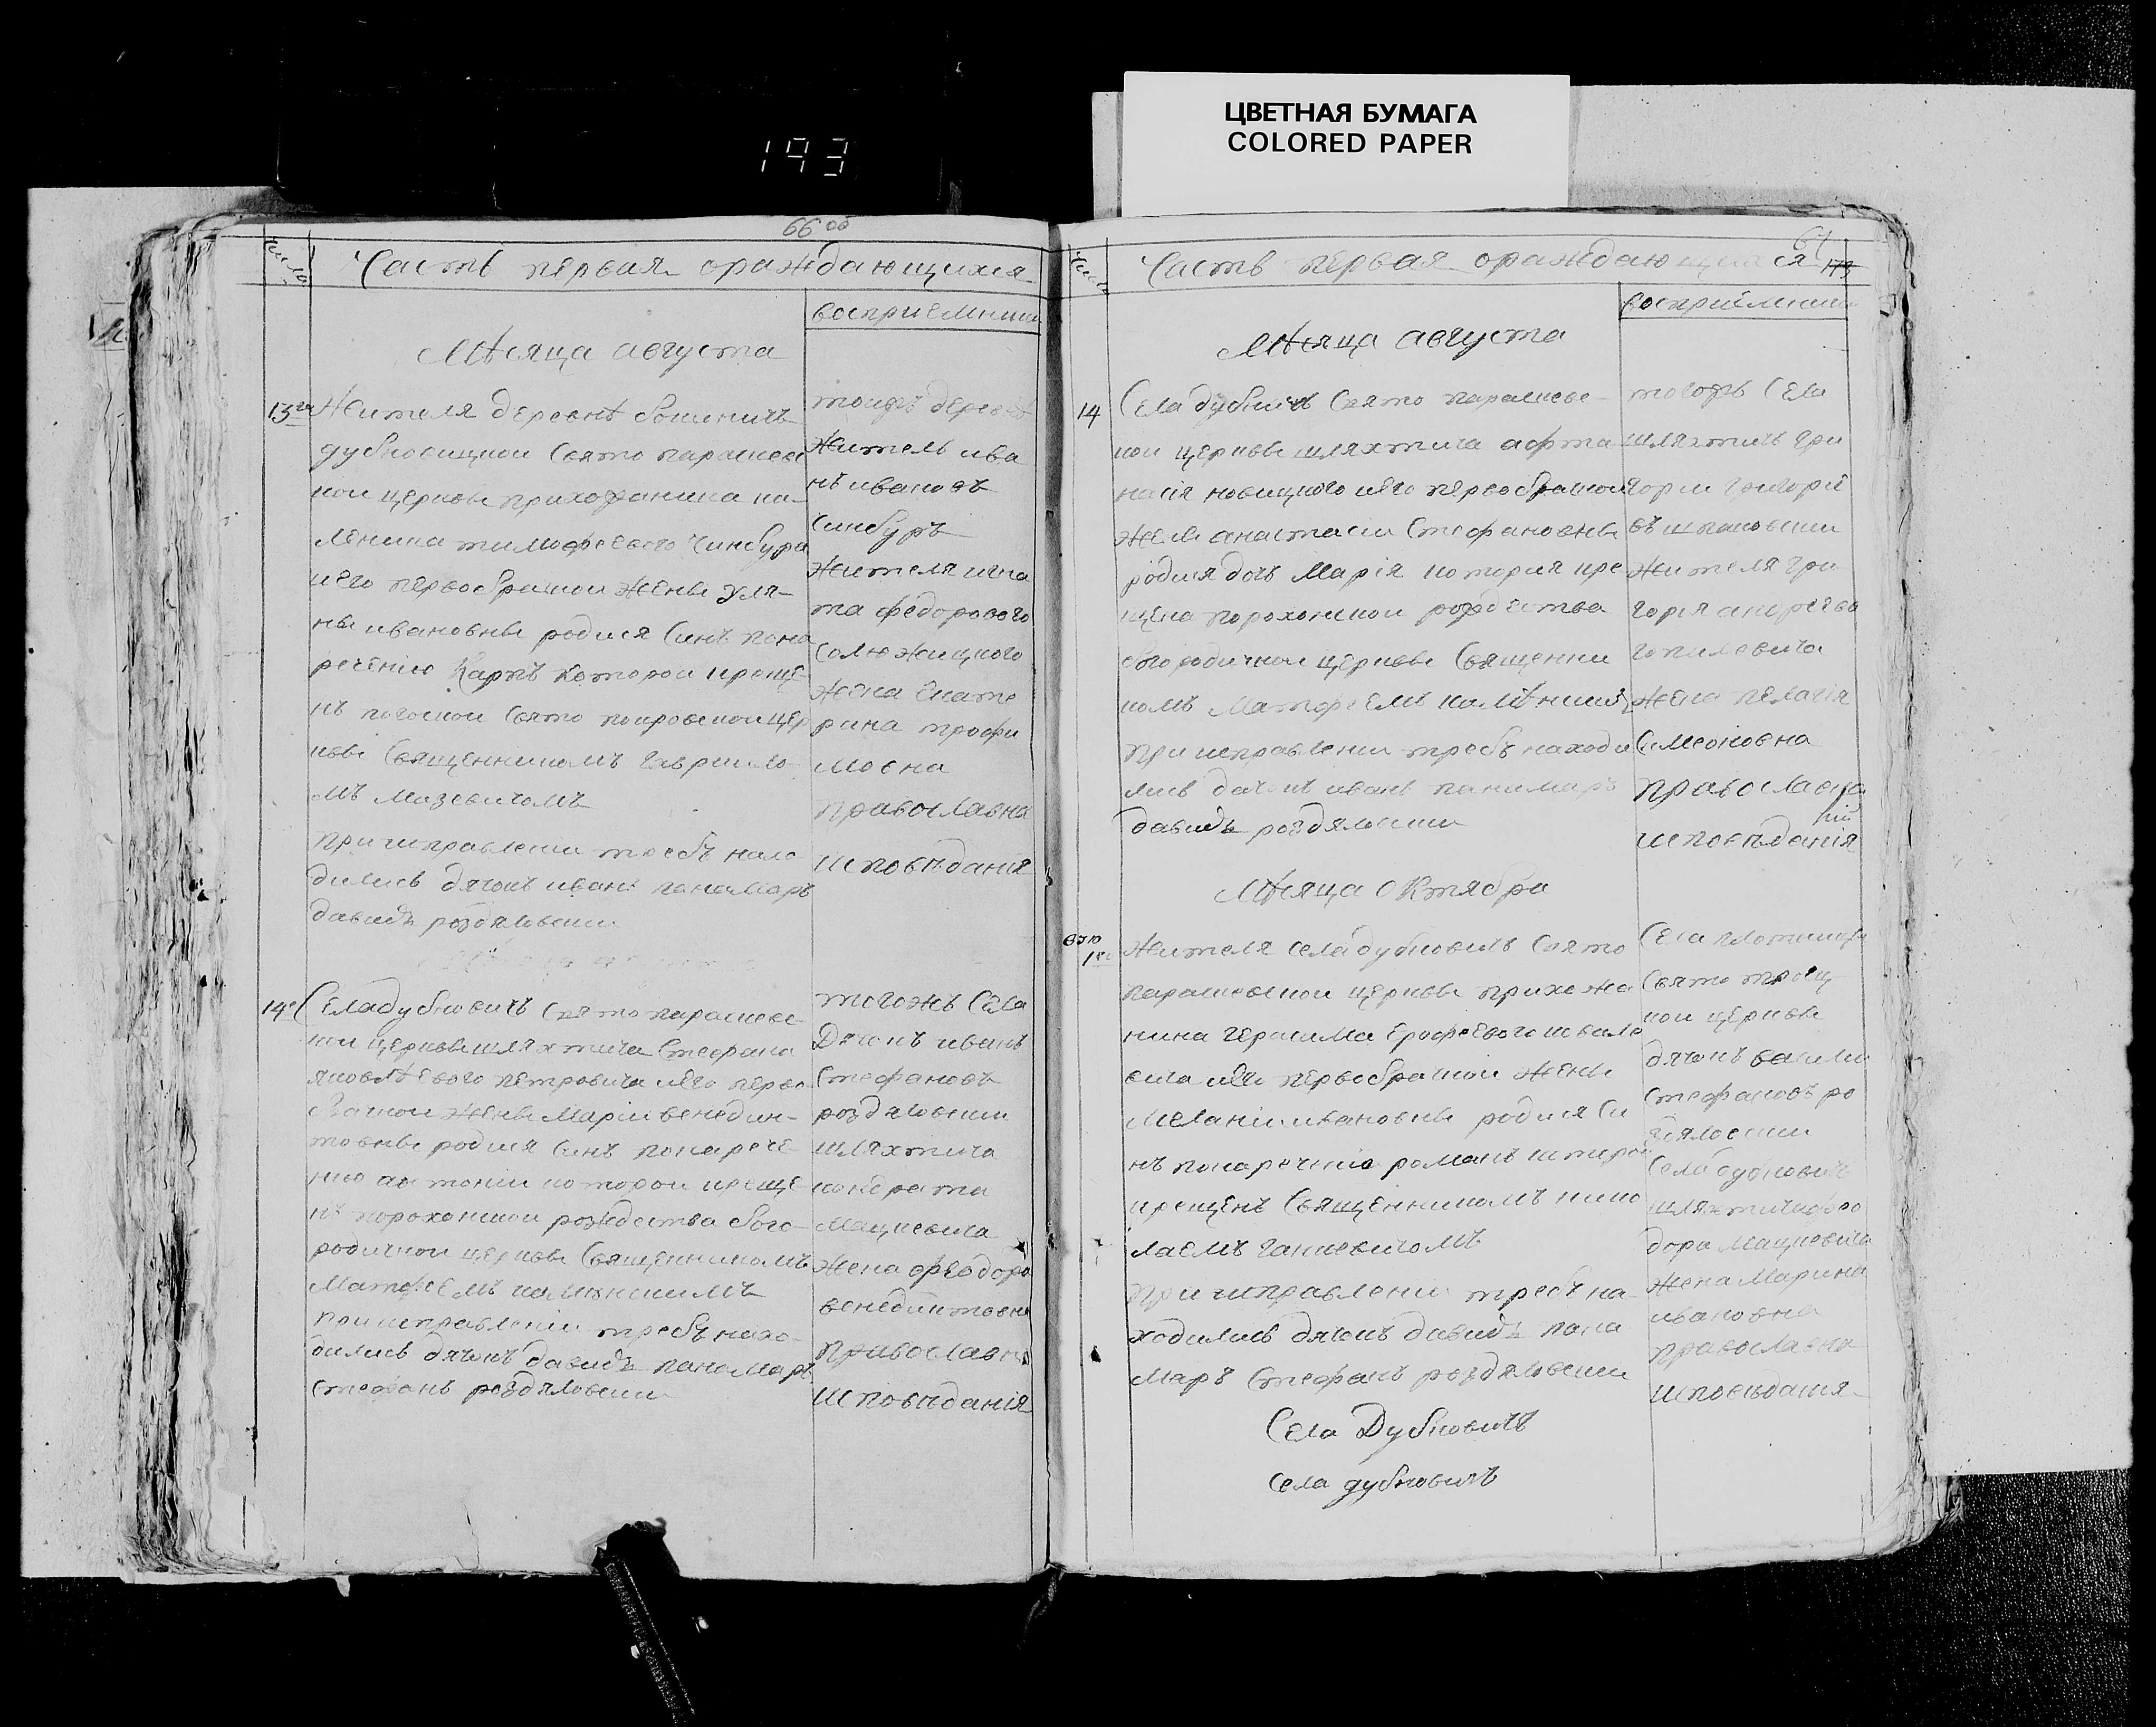 ЦВЕТНАЯ БУМАГА
COLORED PAPER
193
66 об
число
Часть первая ораждающихся
восприемники
Мѣсяца августа
13го
Жителя деревнѣ
дубновицкои Свято параскеви
кои церкви прихожанина ка-
леника тимофеевого Чинбура
иего первобрачнои жены уля-
ны ивановны родися Синъ пона
речению Карпъ которои креще
нъ погоскои Свято покровскои цер
кви Священникомъ гаврило-
мъ мазевичомъ
при исправлении требъ нахо
дились дячокъ иванъ панамаръ
давидъ роздяловски
тоижъ деревнѣ
житель ива
нъ ивановъ
Синбуръ
жителя игна
та федорового
жена екате
рина трофи
мовна
православна
исповѣданія
14го
Села дубновичъ Свято параскеве
кои церкви шляхтича Стефана
яковлѣевого петровича иего перво
брачнои жены Маріи венедик-
товны родися Синъ понарече-
нию антонии которои креще
нъ порохонскои рождества бого-
родичнои церкви Священникомъ
Матфеемъ калѣнскимъ
при исправлении требъ нахо-
дились дячокъ давидъ панамаръ
стефанъ роздяловски
тогожъ Села
Дячокъ иванъ
Стефановъ
роздяловски
шляхтича
кондрата
Мацкевича
жена феодора
венедиктовна
православна
исповѣданія
67
173
число
Часть первая ораждающихся
восприемники
Мѣсяца августа
14
Села дубновичъ Свято параскеве-
кои церкви шляхтича афта
насія новицкого иего первобрачнои
жени анастасіи Стефановны
родися дочъ Марія котория кре
щена порохонскои рождества
богородичнои церкви Священни
комъ Матфеемъ калѣнским
при исправлении требъ находи
лись дячокъ иванъ панамаръ
давидъ роздяловски
тогожъ Села
шляхтичъ гри
гории григорій
въ шпаковски
жителя гри
горія андреева
жена пелагія
Симеоновна
православна
исповѣданія
Мѣсяца Октября
1го
Жителя села дубновичъ Свято
параскевскои церкви прихожа
нина герасима ерофеевого ковале
вича иего первобрачнои жены
Меланіи ивановны родися Си
нъ понаречению романъ которои
крещенъ Священникомъ нико
лаемъ ганкевичомъ
при исправлении требъ на-
ходились дячокъ давидъ пана
маръ Стефанъ роздяловски
Села
Свято троиц-
кои церкви
дячокъ васили
Стефановъ ро
здяловски
Села дубновичъ
шляхтича фео
дора Мацкевича
жена Марина
ивановна
православна
исповѣданія
Села Дубновичъ
села дубновичъ